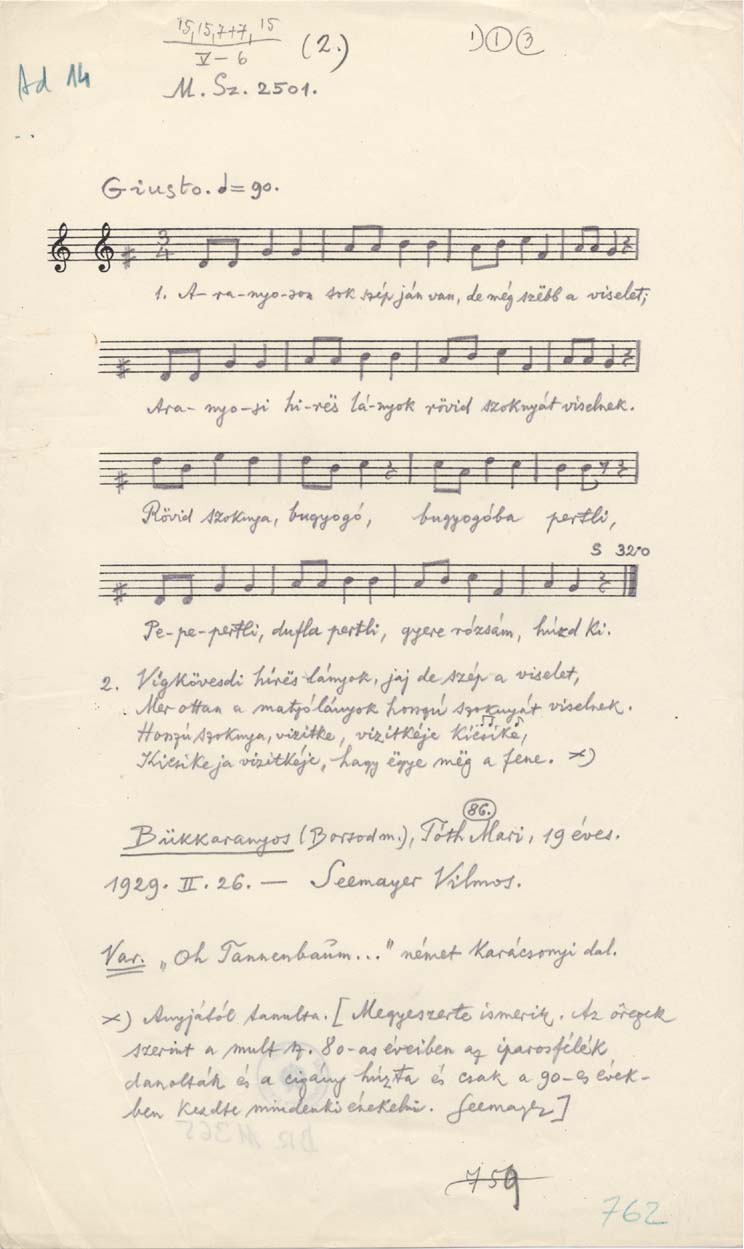 15, 15, 7+7, 15
V-6
(2.)
1) ① ③
Ad 14
M. Sz. 2501.
Giusto. ♩= 90.
3
4
1. A-ra-nyo-son sok szép ján van, de még szëbb a viselet;
Ara-nyo-si hi-rës lá-nyok rövid szoknyát viselnek.
Rövid szoknya, bugyogó, bugyogóba pertli,
S 32·0
Pe-pe-pertli, dufla pertli, gyere rózsám, húzd ki.
2. Vígkövesdi hírës lányok, jaj de szép a viselet,
Mer ottan a matjólányok honzú szoknyát viselnek.
Honzú szoknya, vizitke, vizitkéje kicsike,
Kicsike ja vizitkéje, hagy ëgye mëg a fene. x)
86.
Bükkaranyos (Borsod m.), Tóth Mari, 19 éves.
1929. II. 26. — Seemayer Vilmos.
Var. „Oh Tannenbaum..." német karácsonyi dal.
x) Anyjától tanulta. [Megyeszerte ismerik. Az öregek
szerint a mult sz. 80-as éveiben az iparosfélék
danolták és a cigány húzta és csak a 90-es évek-
ben kezdte mindenki énekelni. Seemayer]
759
762